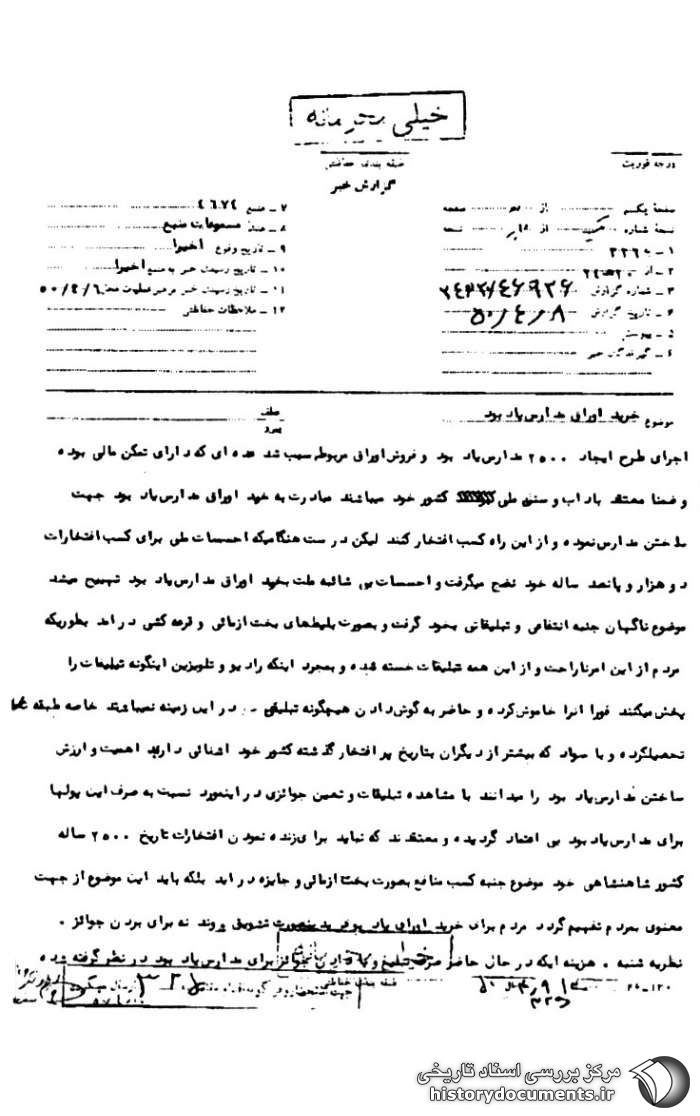 خیلی محرمانه
درجه فوریت
طبقه بندی حفاظتی
گزارش خبر
صفحه یکم از صفحه
نسخه شماره از نسخه
۱ -
۲ - از
۳ - شماره گزارش
۴ - تاریخ گزارش ۵۰/۴/۸
۵ - پیوست
۶ - گیرندگان خبر
۷ - منبع ۴۶۷۴
۸ - منشأ مسموعات منبع
۹ - تاریخ وقوع اخیرا
۱۰ - تاریخ رسیدن خبر به منبع اخیرا
۱۱ - تاریخ رسیدن خبر برهبر عملیات ۵۰/۴/۶
۱۲ - ملاحظات حفاظتی
موضوع خرید اوراق مدارس یاد بود
عطف
پیرو
اجرای طرح ایجاد ۲۵۰۰ مدارس یاد بود و فروش اوراق مربوطه سبب شد عده ای که دارای تمکن مالی بوده
و ضمنا معتقد باداب و سنن ملی کشور خود میباشند مبادرت به خرید اوراق مدارس یاد بود جهت
ساختن مدارس نموده و از این راه کسب افتخار کنند لیکن درست هنگامیکه احسسات ملی برای کسب افتخارات
دو هزار و پانصد ساله خود نضج میگرفت و احسسات بی شائبه ملت بخرید اوراق مدارس یاد بود تهییج میشد
موضوع ناگهان جنبه انتفاعی و تبلیغاتی بخود گرفت و بصورت بلیطهای بخت ازمائی و قرعه کشی درامد بطوریکه
مردم از این امر ناراحت و از این همه تبلیغات خسته شده و بمجرد اینکه رادیو و تلویزین اینگونه تبلیغات را
پخش میکنند فورا انرا خاموش کرده و حاضر به گوش دادن هیچگونه تبلیغی در این زمینه نمیباشند خاصه طبقه
تحصیلکرده و با سواد که بیشتر از دیگران بتاریخ پر افتخار گذشته کشور خود اشنائی دارند اهمیت و ارزش
ساختن مدارس یاد بود را میدانند با مشاهده تبلیغات و تعین جوائزی در اینمورد نسبت به صرف این پولها
برای مدارس یاد بود بی اعتماد گردیده و معتقدند که نباید برای زنده نمودن افتخارات تاریخ ۲۵۰۰ ساله
کشور شاهنشاهی خود موضوع جنبه کسب منافع بصورت بخت ازمائی و جایزه در اید بلکه باید این موضوع از جهت
معنوی بمردم تفهیم گردد مردم برای خرید اوراق یاد بود بدینصورت تشویق شوند نه برای بردن جوائز .
نظریه شنبه . هزینه ایکه در حال حاضر صرف تبلیغ و دادن جوائز برای مدارس یاد بود در نظر گرفته شده
طبقه بندی حفاظتی
مرکز بررسی اسناد تاریخی
historydocuments.ir